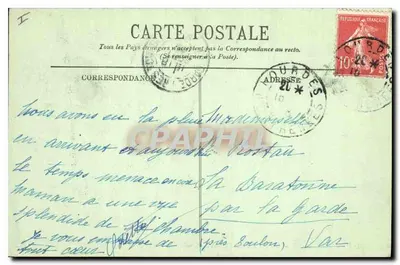 I
CARTE POSTALE
Tous les Pays étrangers n'acceptent pas la Correspondance au recto.
(Se renseigner à la Poste).
CORRESPONDANCE
ADRESSE
RÉPUBLIQUE FRANÇAISE
10
LOURDES
Nous avons eu la pluie
en arrivant et aujourd'hui
le temps menace encore
Maman a une vue
splendide de sa chambre
Je vous
tout cœur
Mademoiselle
Rostan
La Baratonne
par La Garde
(près Toulon) Var
CARPHAC